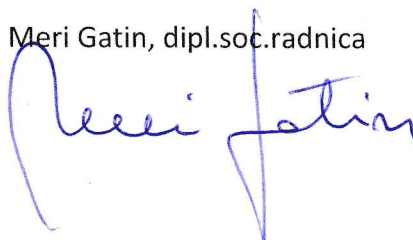 Meri Gatin, dipl.soc.radnica
Meri Gatin